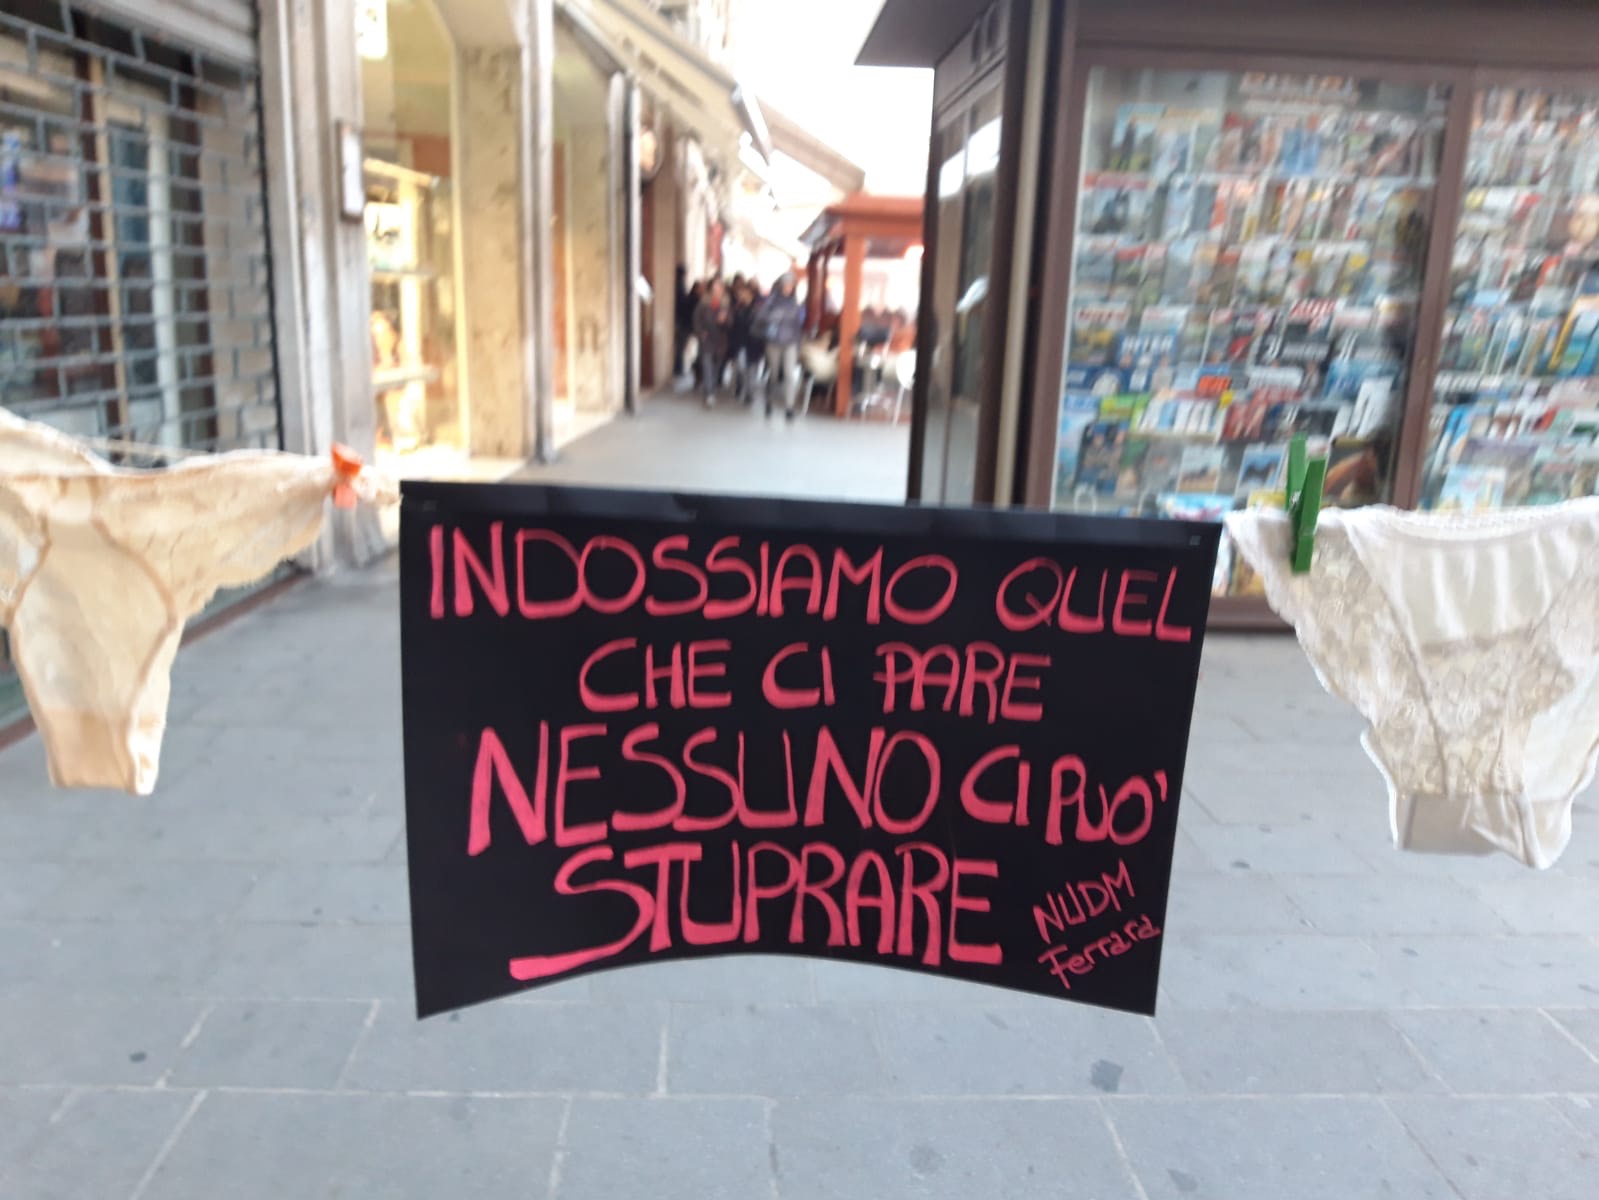 INDOSSIAMO QUEL
CHE CI PARE
NESSUNO CI PUO'
STUPRARE
NUDM
Ferrara